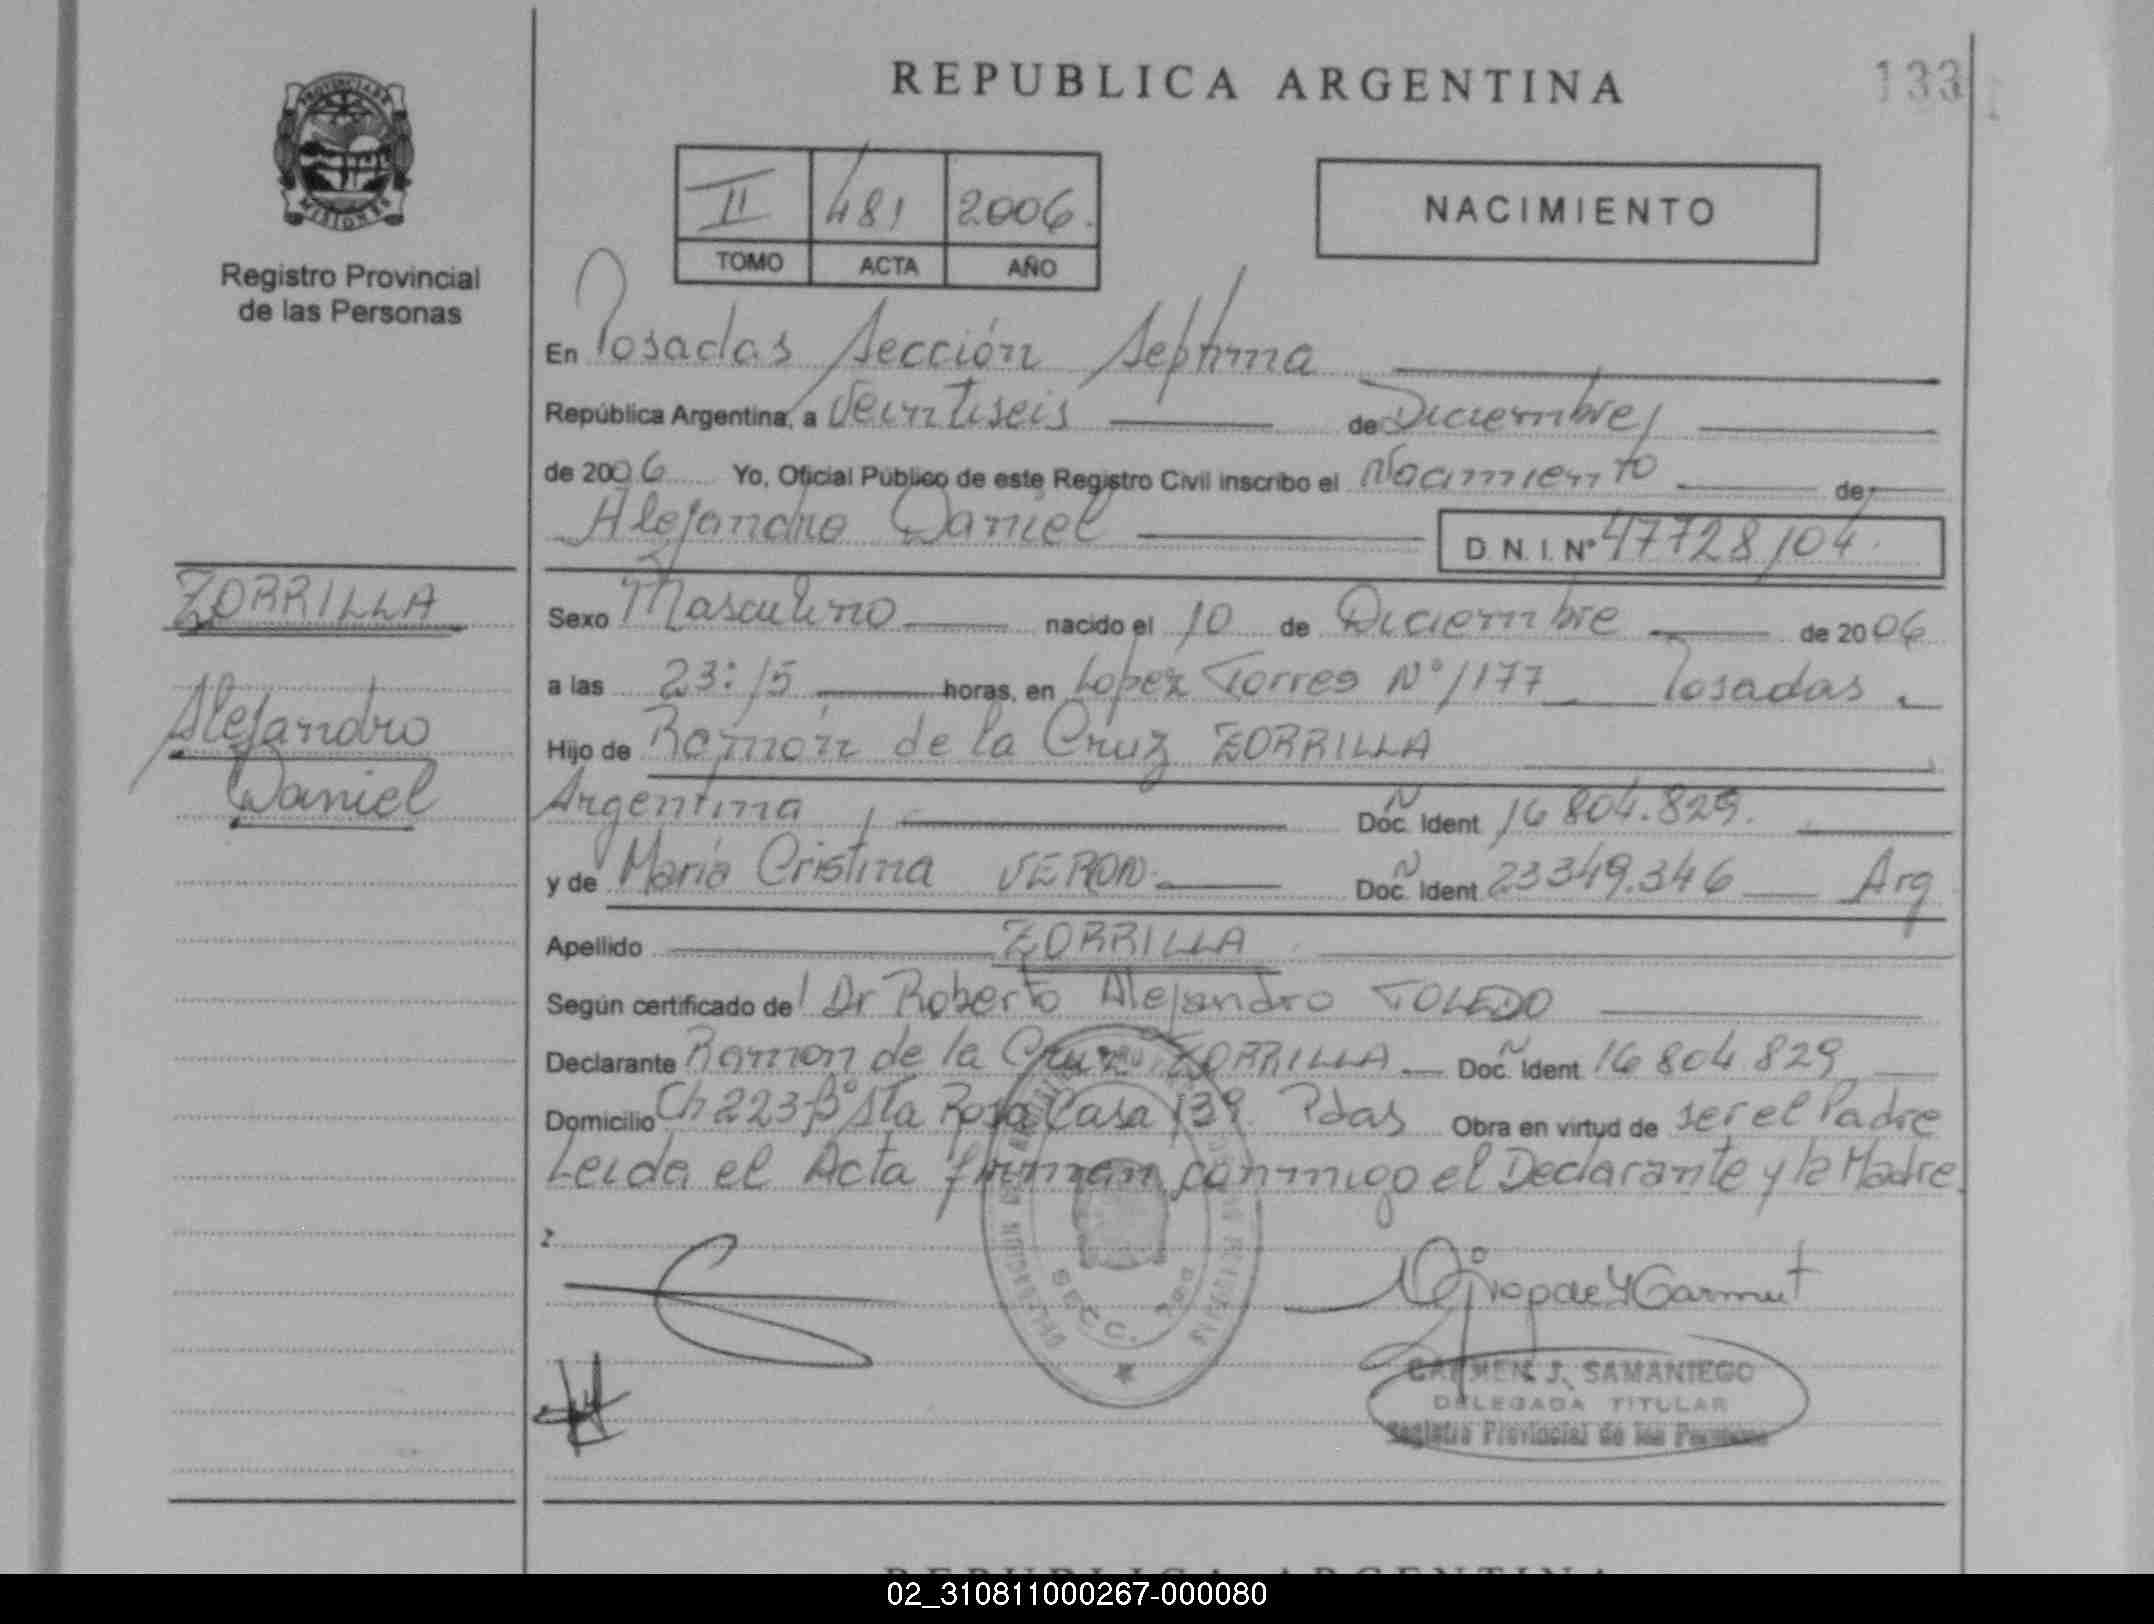 REPUBLICA ARGENTINA
133
PROVINCIA DE
MISIONES
Registro Provincial
de las Personas
II 481 2006.
TOMO ACTA AÑO
NACIMIENTO
En Posadas Sección Septima
República Argentina, a Veintiseis de Diciembre
de 2006 Yo, Oficial Público de este Registro Civil inscribo el Nacimiento de
Alejandro Daniel D.N.I. Nº 47728104.
ZORRILLA
Alejandro
Daniel
Sexo Masculino nacido el 10 de Diciembre de 2006
a las 23:15 horas, en Lopez Torres Nº 1177 Posadas
Hijo de Ramón de la Cruz ZORRILLA
Argentina Doc. Ident 16804.829.
y de María Cristina VERON Doc. Ident 23349.346 Arg
Apellido ZORRILLA
Según certificado de Dr Roberto Alejandro TOLEDO
Declarante Ramon de la Cruz ZORRILLA Doc. Ident 16804829
Domicilio Ch 223 Bº Sta Rosa Casa 139 Pdas Obra en virtud de ser el Padre
Leida el Acta firman conmigo el Declarante y la Madre
SECC. 7ma
CARMEN J. SAMANIEGO
DELEGADA TITULAR
Registro Provincial de las Personas
REPUBLICA ARGENTINA
02_310811000267-000080